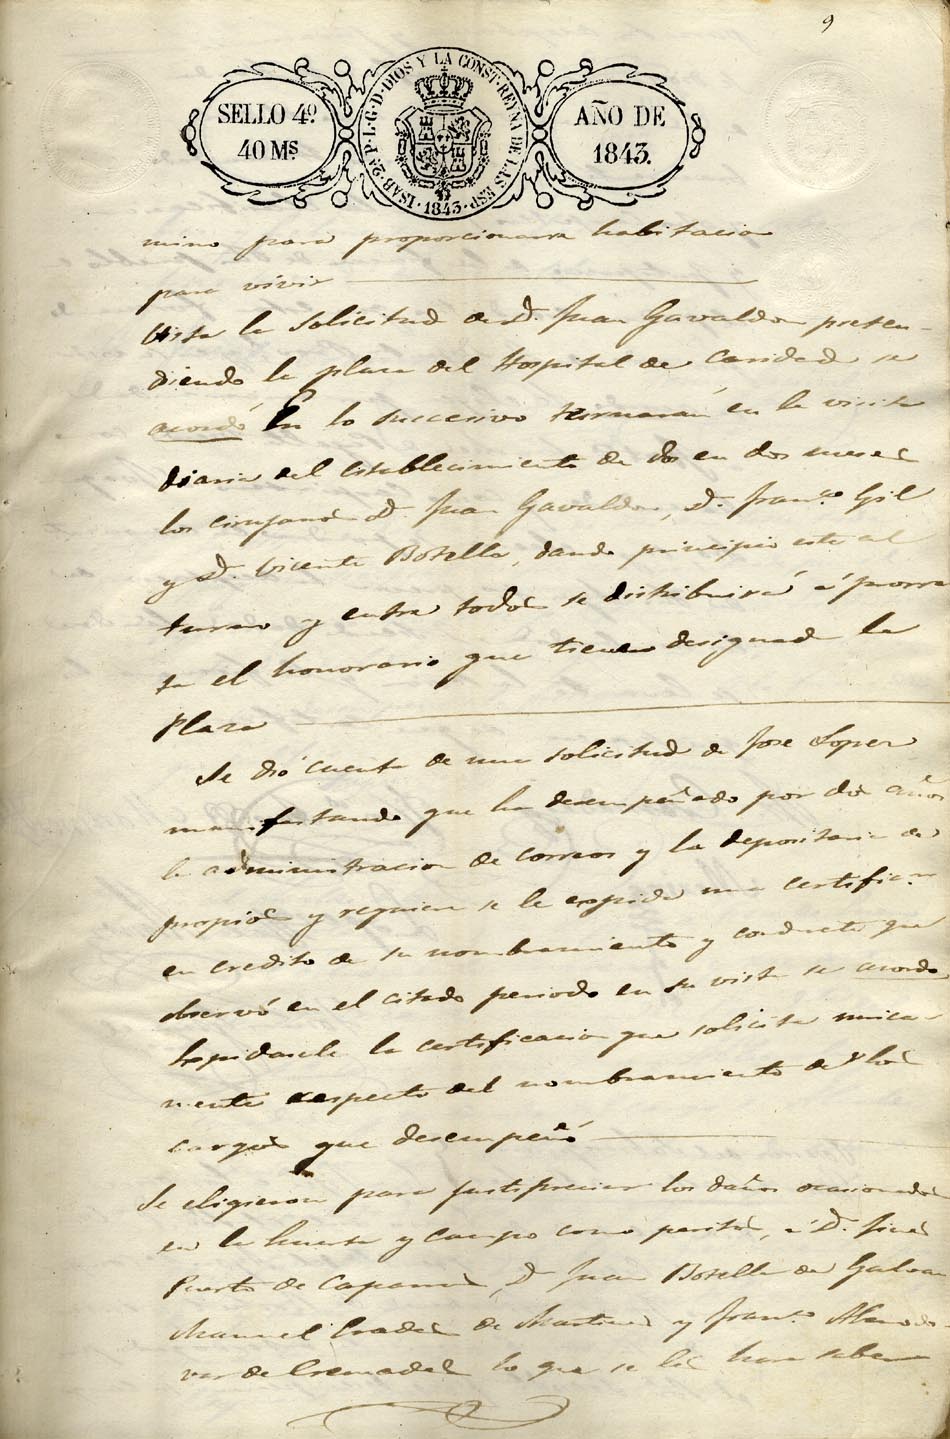 9
SELLO 4º
40 Mˢ
ISAB. 2ª P. L. G. D. DIOS Y LA CONST. REYNA DE LAS ESP.
1843
AÑO DE
1843.
mino para proporcionarse habitacion
para vivir
Vista la solicitud de D. Juan Gavaldon preten-
diendo la plaza del Hospital de Caridad se
acordó En lo succesivo turnarán en la visita
diaria del establecimiento de dos en dos meses
los cirujanos D. Juan Gavaldon, D. Franco. Gil
y D. Vicente Botella, dando principio este al
turno y entre todos se distribuirá á prorra
ta el honorario que tiene designad la
Plaza
Se dió cuenta de una solicitud de Jose Lopez
manifestando que ha desempeñado por dos años
la administracion de correos y la depositaria de
propios y requiere se le expida una certific.n
en credito de su nombramiento y conducta que
observó en el citado periodo en su vista se acordo
Expidasele la certificacion que solicita unica-
mente respecto del nombramiento de los
cargos que desempeñó
Se eligieron para justipreciar los daños ocasionados
en la huerta y campo como peritos, á D. Jines
Puerto de D. Juan Botella de Galvan
Manuel Pradés de Martinez y Franco. Almodo-
var de Cremades lo que se les hara saber